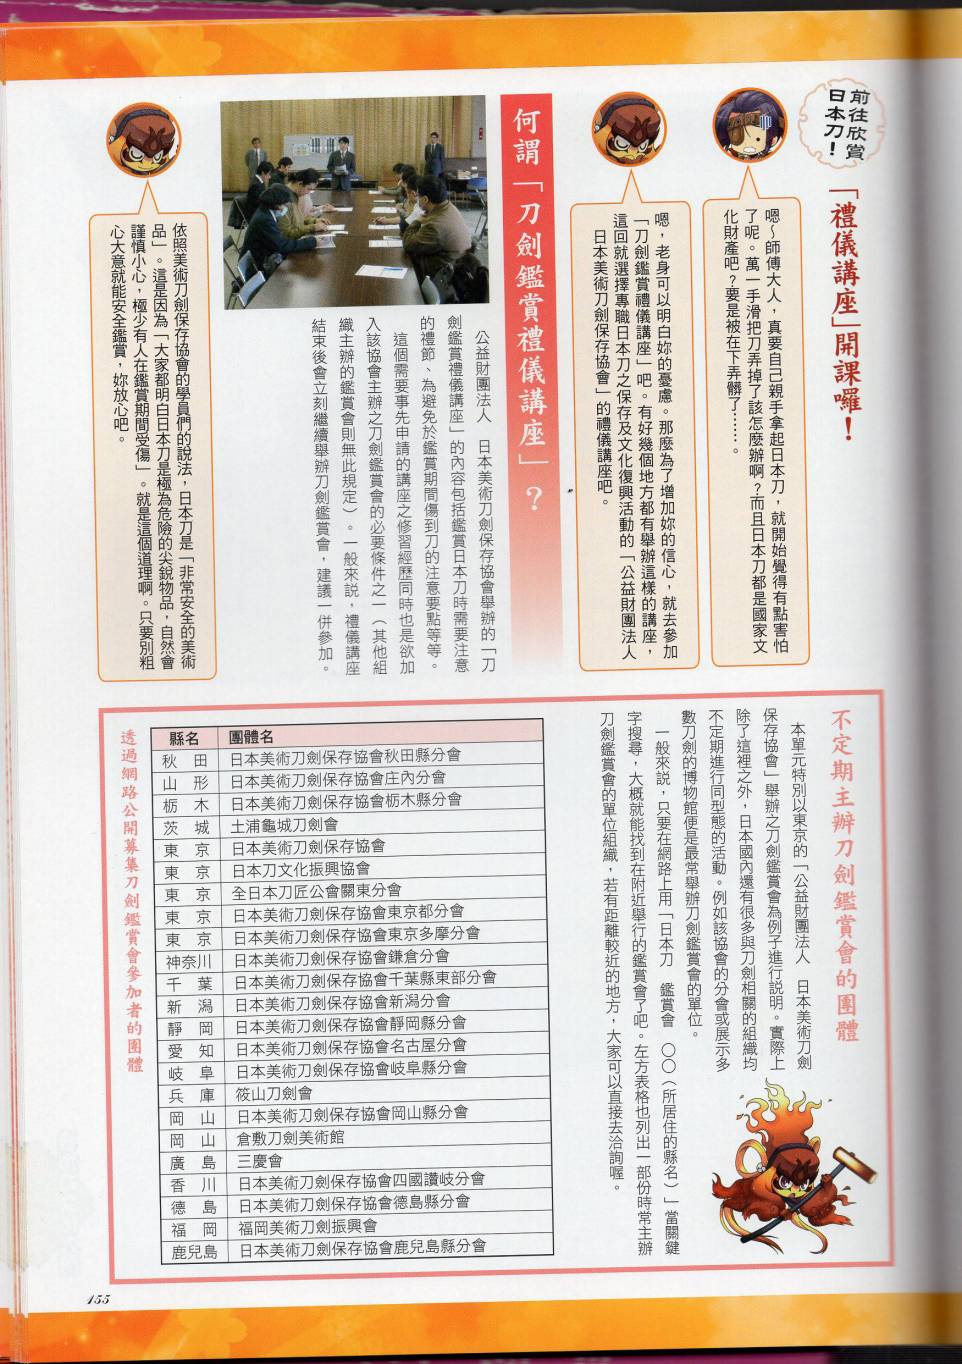 前往欣賞
日本刀！
「禮儀講座」開課囉！
嗯～師傅大人，真要自己親手拿起日本刀，就開始覺得有點害怕
了呢。萬一手滑把刀弄掉了該怎麼辦啊？而且日本刀都是國家文
化財產吧？要是被在下弄髒了……。
嗯，老身可以明白妳的憂慮。那麼為了增加妳的信心，就去參加
「刀劍鑑賞禮儀講座」吧。有好幾個地方都有舉辦這樣的講座，
這回就選擇專職日本刀之保存及文化復興活動的「公益財團法人
日本美術刀劍保存協會」的禮儀講座吧。
何謂「刀劍鑑賞禮儀講座」？
公益財團法人　日本美術刀劍保存協會舉辦的「刀
劍鑑賞禮儀講座」的內容包括鑑賞日本刀時需要注意
的禮節、為避免於鑑賞期間傷到刀的注意要點等等。
這個需要事先申請的講座之修習經歷同時也是欲加
入該協會主辦之刀劍鑑賞會的必要條件之一（其他組
織主辦的鑑賞會則無此規定）。一般來說，禮儀講座
結束後會立刻繼續舉辦刀劍鑑賞會，建議一併參加。
依照美術刀劍保存協會的學員們的說法，日本刀是「非常安全的美術
品」。這是因為「大家都明白日本刀是極為危險的尖銳物品，自然會
謹慎小心，極少有人在鑑賞期間受傷」。就是這個道理啊。只要別粗
心大意就能安全鑑賞，妳放心吧。
不定期主辦刀劍鑑賞會的團體
本單元特別以東京的「公益財團法人　日本美術刀劍
保存協會」舉辦之刀劍鑑賞會為例子進行說明。實際上
除了這裡之外，日本國內還有很多與刀劍相關的組織均
不定期進行同型態的活動。例如該協會的分會或展示多
數刀劍的博物館便是最常舉辦刀劍鑑賞會的單位。
一般來說，只要在網路上用「日本刀　鑑賞會　〇〇（所居住的縣名）」當關鍵
字搜尋，大概就能找到在附近舉行的鑑賞會了吧。左方表格也列出一部份時常主辦
刀劍鑑賞會的單位組織，若有距離較近的地方，大家可以直接去洽詢喔。
縣名　團體名
秋田　日本美術刀劍保存協會秋田縣分會
山形　日本美術刀劍保存協會庄內分會
栃木　日本美術刀劍保存協會栃木縣分會
茨城　土浦龜城刀劍會
東京　日本美術刀劍保存協會
東京　日本刀文化振興協會
東京　全日本刀匠公會關東分會
東京　日本美術刀劍保存協會東京都分會
東京　日本美術刀劍保存協會東京多摩分會
神奈川　日本美術刀劍保存協會鎌倉分會
千葉　日本美術刀劍保存協會千葉縣東部分會
新潟　日本美術刀劍保存協會新潟分會
靜岡　日本美術刀劍保存協會靜岡縣分會
愛知　日本美術刀劍保存協會名古屋分會
岐阜　日本美術刀劍保存協會岐阜縣分會
兵庫　筱山刀劍會
岡山　日本美術刀劍保存協會岡山縣分會
岡山　倉敷刀劍美術館
廣島　三慶會
香川　日本美術刀劍保存協會四國讚岐分會
德島　日本美術刀劍保存協會德島縣分會
福岡　福岡美術刀劍振興會
鹿兒島　日本美術刀劍保存協會鹿兒島縣分會
透過網路公開募集刀劍鑑賞會參加者的團體
155